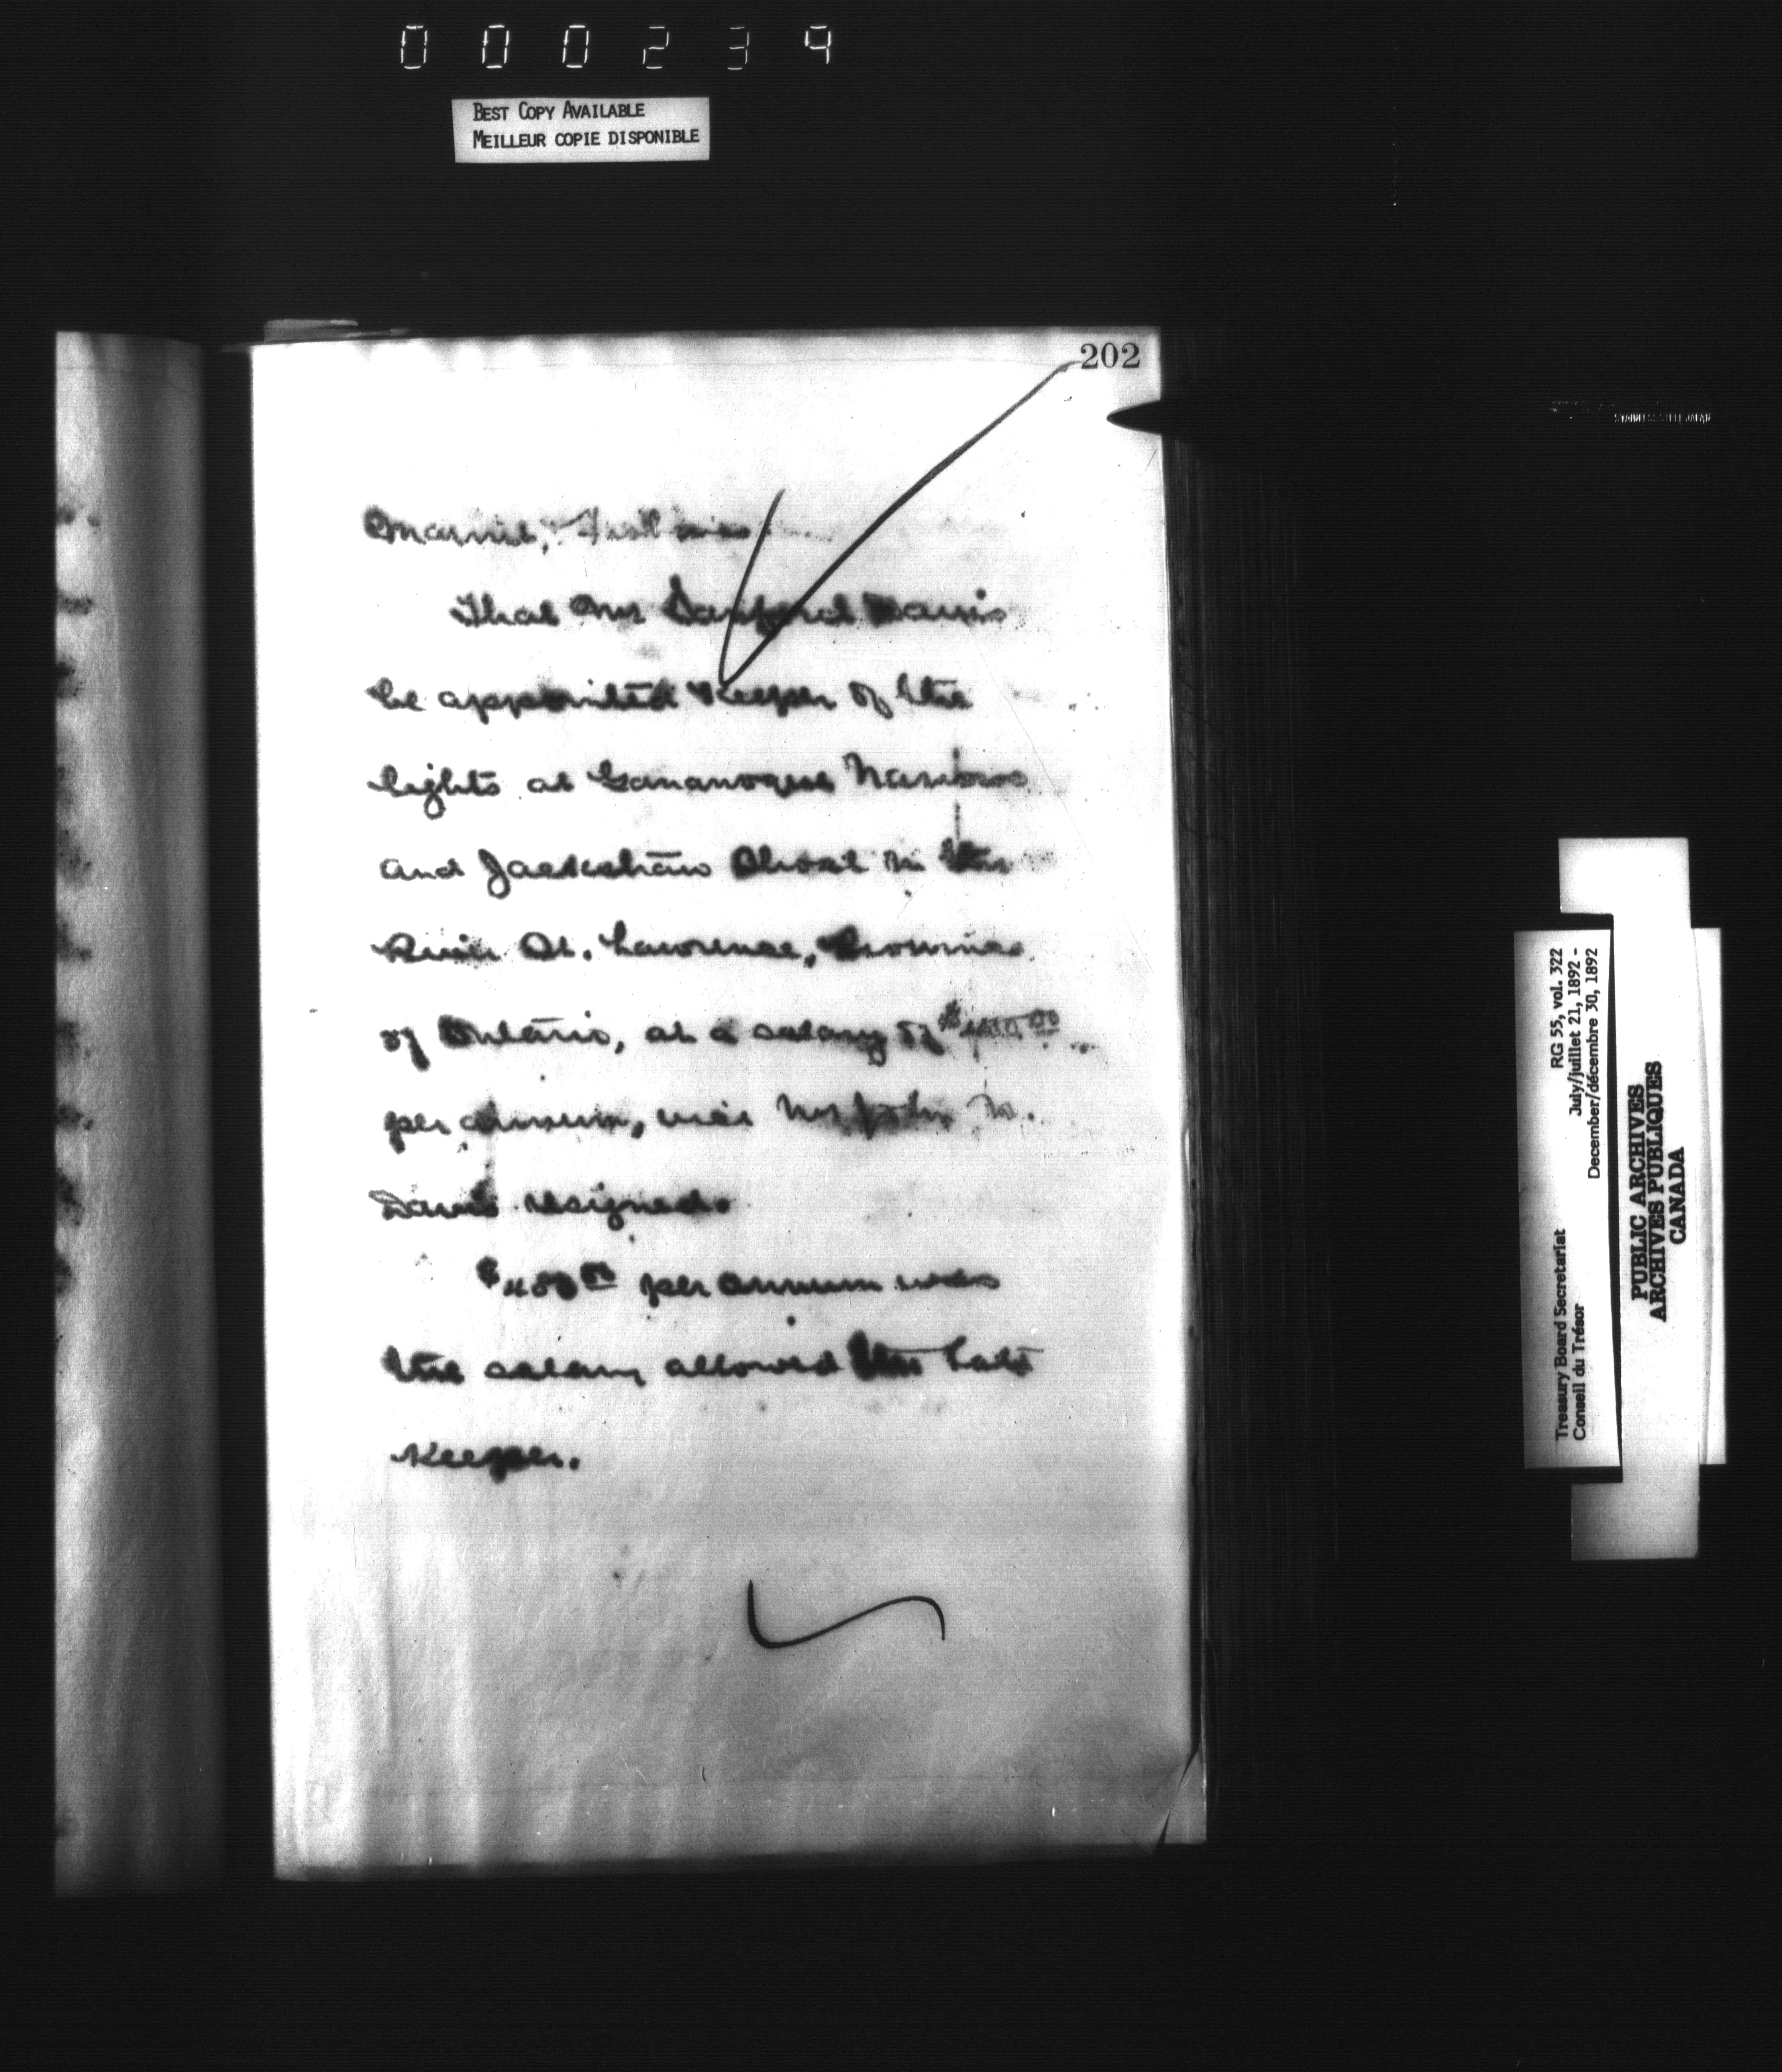 000239
BEST COPY AVAILABLE
MEILLEUR COPIE DISPONIBLE
202
Marine, Fisheries
That Mr Sanford Davis
be appointed Keeper of the
lights at Gananoque Narrows
and Jackstraw Shoal in the
River St. Lawrence, Province
of Ontario, at a salary of $
per annum, vice Mr John
Davis resigned.
$480 00 per annum was
the salary allowed the late
Keeper.
STAINLESS STEEL JAPAN
Treasury Board Secretariat RG 55, vol. 322
Conseil du Trésor July/juillet 21, 1892 -
December/décembre 30, 1892
PUBLIC ARCHIVES
ARCHIVES PUBLIQUES
CANADA